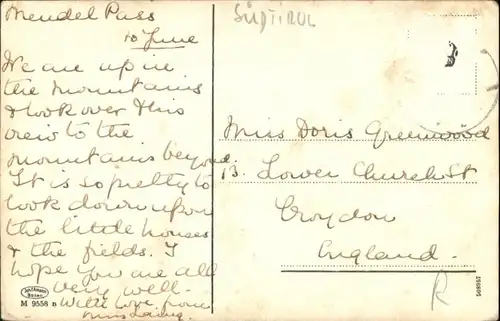 Mendel Pass
10 June
We are up in
the mountains
& look over this
view to the
mountains beyond.
It is so pretty to
look down upon
the little houses
& the fields. I
hope you are all
very well-
With love from
Miss
M 9558 B
SÜDTIROL
Miss Doris Greenwood
13. Lower Church St
Croydon
England.
R